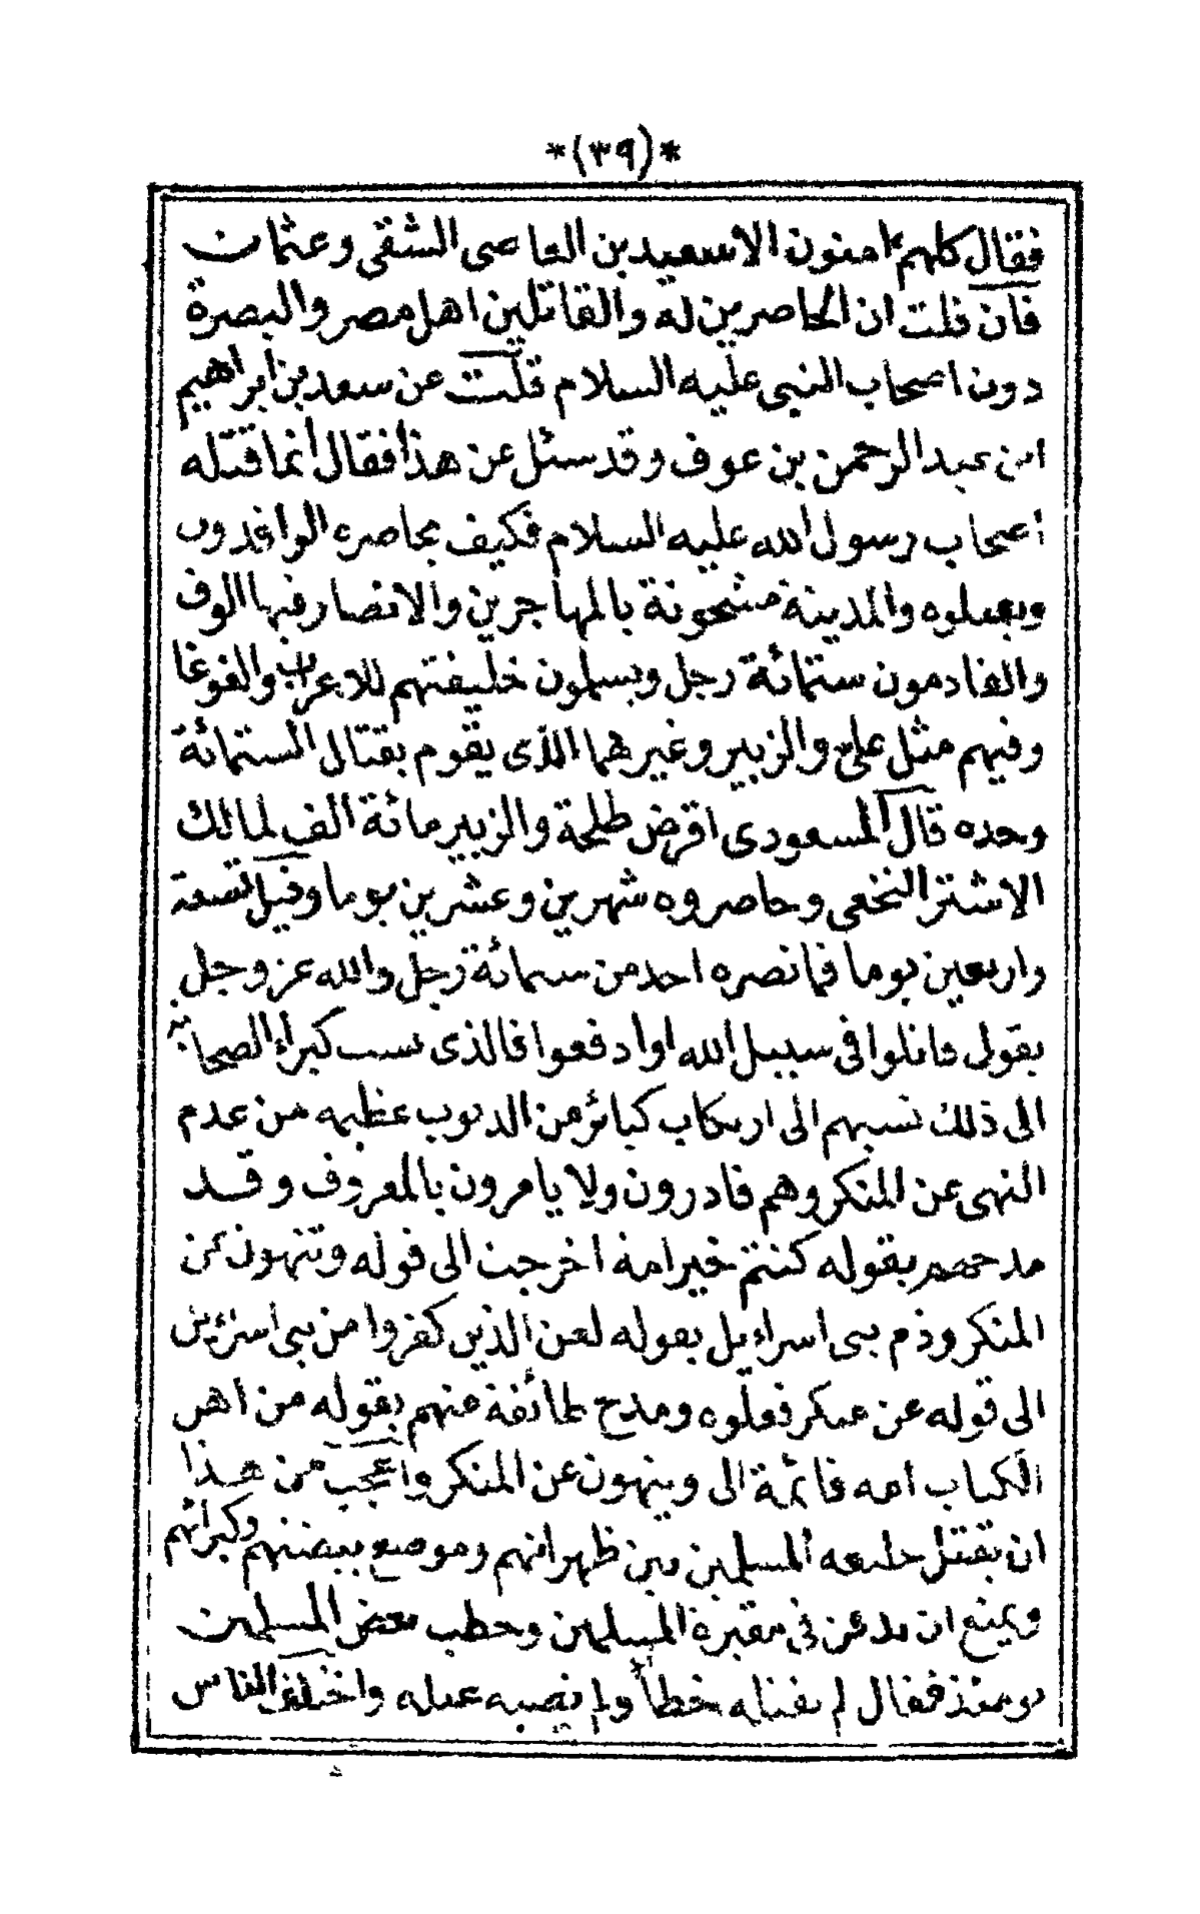 *(٣٩)*
فقال كلهم امنون الا سعيد بن العاصى الشقى وعثمان
فان قلت ان المحاصرين له والقاتلين اهل مصر والبصرة
دون اصحاب النبى عليه السلام قلت عن سعد بن ابراهيم
ابن عبد الرحمن بن عوف وقد سئل عن هذا فقال انما قتله
اصحاب رسول الله عليه السلام فكيف يحاصره الوافدون
ويقتلوه والمدينة مشحونة بالمهاجرين والانصار فيها الوف
والقادمون ستمائة رجل ويسلمون خليفتهم للاعراب والغوغا
وفيهم مثل على والزبير وغيرهما الذى يقوم بقتال الستمائة
وحده قال المسعودى اقرض طلحة والزبير مائة الف لمالك
الاشتر النخعى وحاصروه شهرين وعشرين يوما وقيل تسعة
واربعين يوما فما نصره احد من ستمائة رجل والله عز وجل
يقول قاتلوا فى سبيل الله اوادفعوا فالذى نسب كبراء الصحابة
الى ذلك نسبهم الى ارتكاب كبائر من الذنوب عظيمه من عدم
النهى عن المنكر وهم قادرون ولا يامرون بالمعروف وقد
مدحهم بقوله كنتم خير امة اخرجت الى قوله وتنهون عن
المنكر وذم بنى اسراءيل بقوله لعن الذين كفروا من بنى اسرءيل
الى قوله عن منكر فعلوه ومدح طائفة منهم بقوله من اهل
الكتاب امه قائمة الى وينهون عن المنكر واعجب من هذا
ان يقتل خليفه المسلمين بين ظهرانهم وموضع بيضتهم وكبرائهم
ويمنع ان يدفن فى مقبرة المسلمين وخطب بعض المسلمين
يومئذ فقال لم يقتله خطأ ولم نصبه عيله واختلف الناس